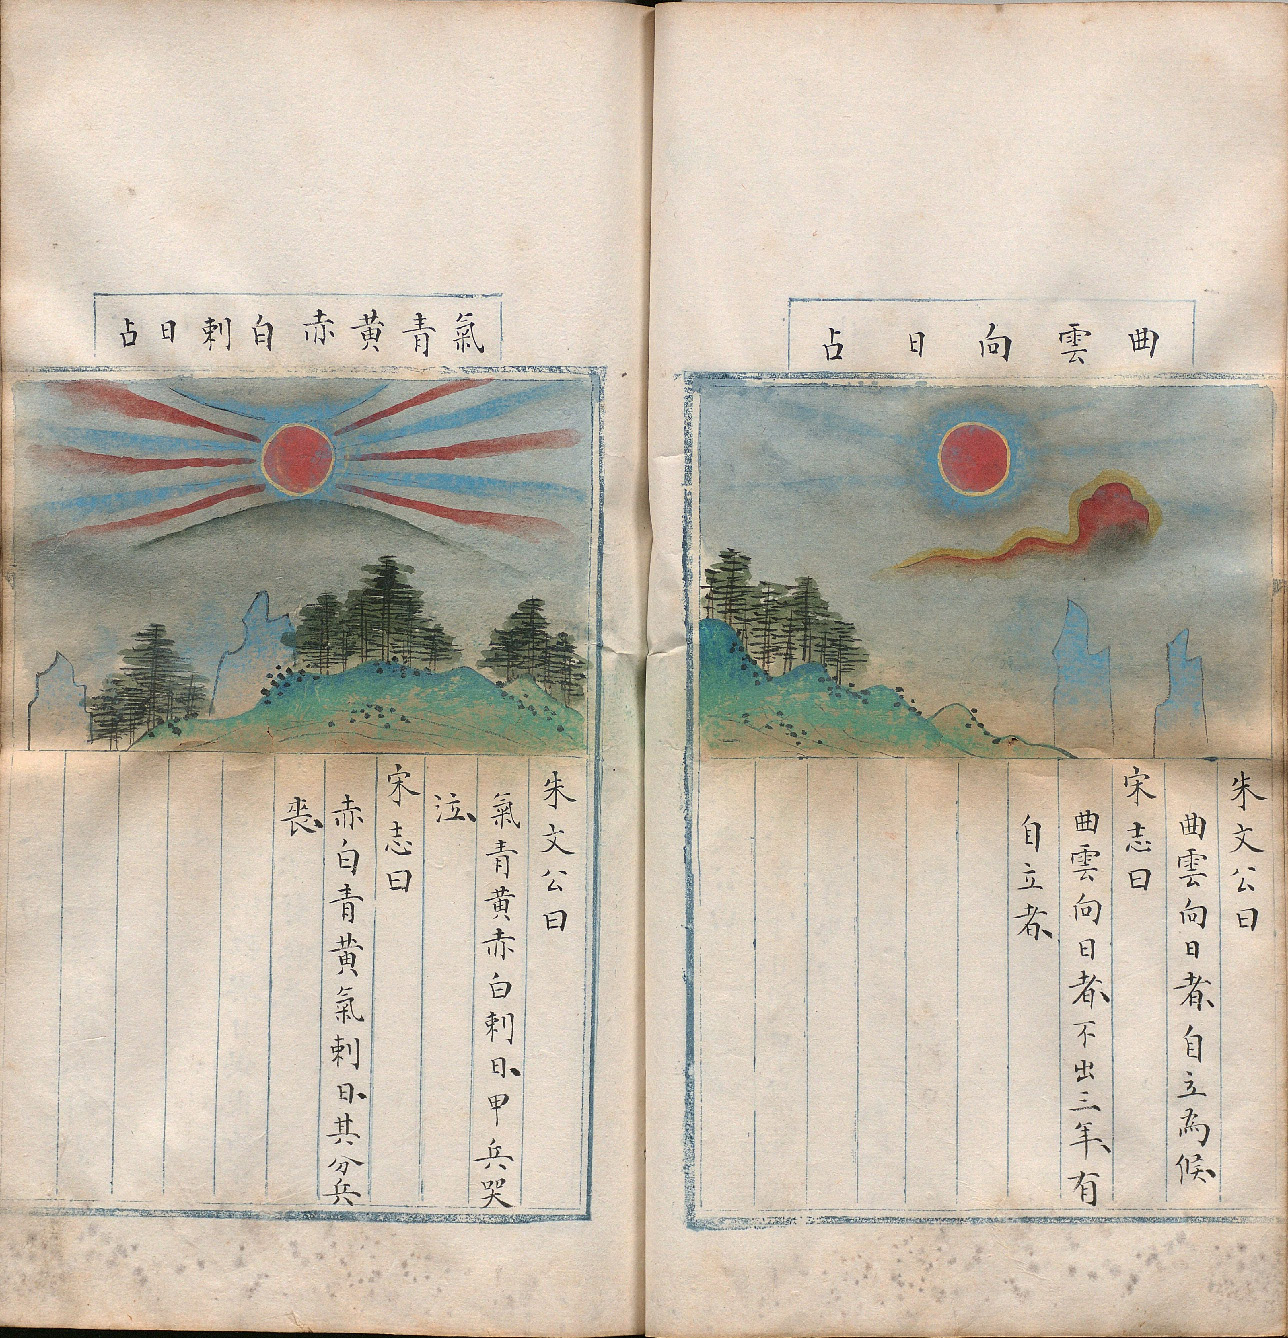 曲雲向日占
朱文公曰
曲雲向日者自立為候
宋志曰
曲雲向日者不出三年有
自立者
氣青黃赤白刺日占
朱文公曰
氣青黃赤白刺日甲兵哭
泣
宋志曰
赤白青黃氣刺日其分兵
喪